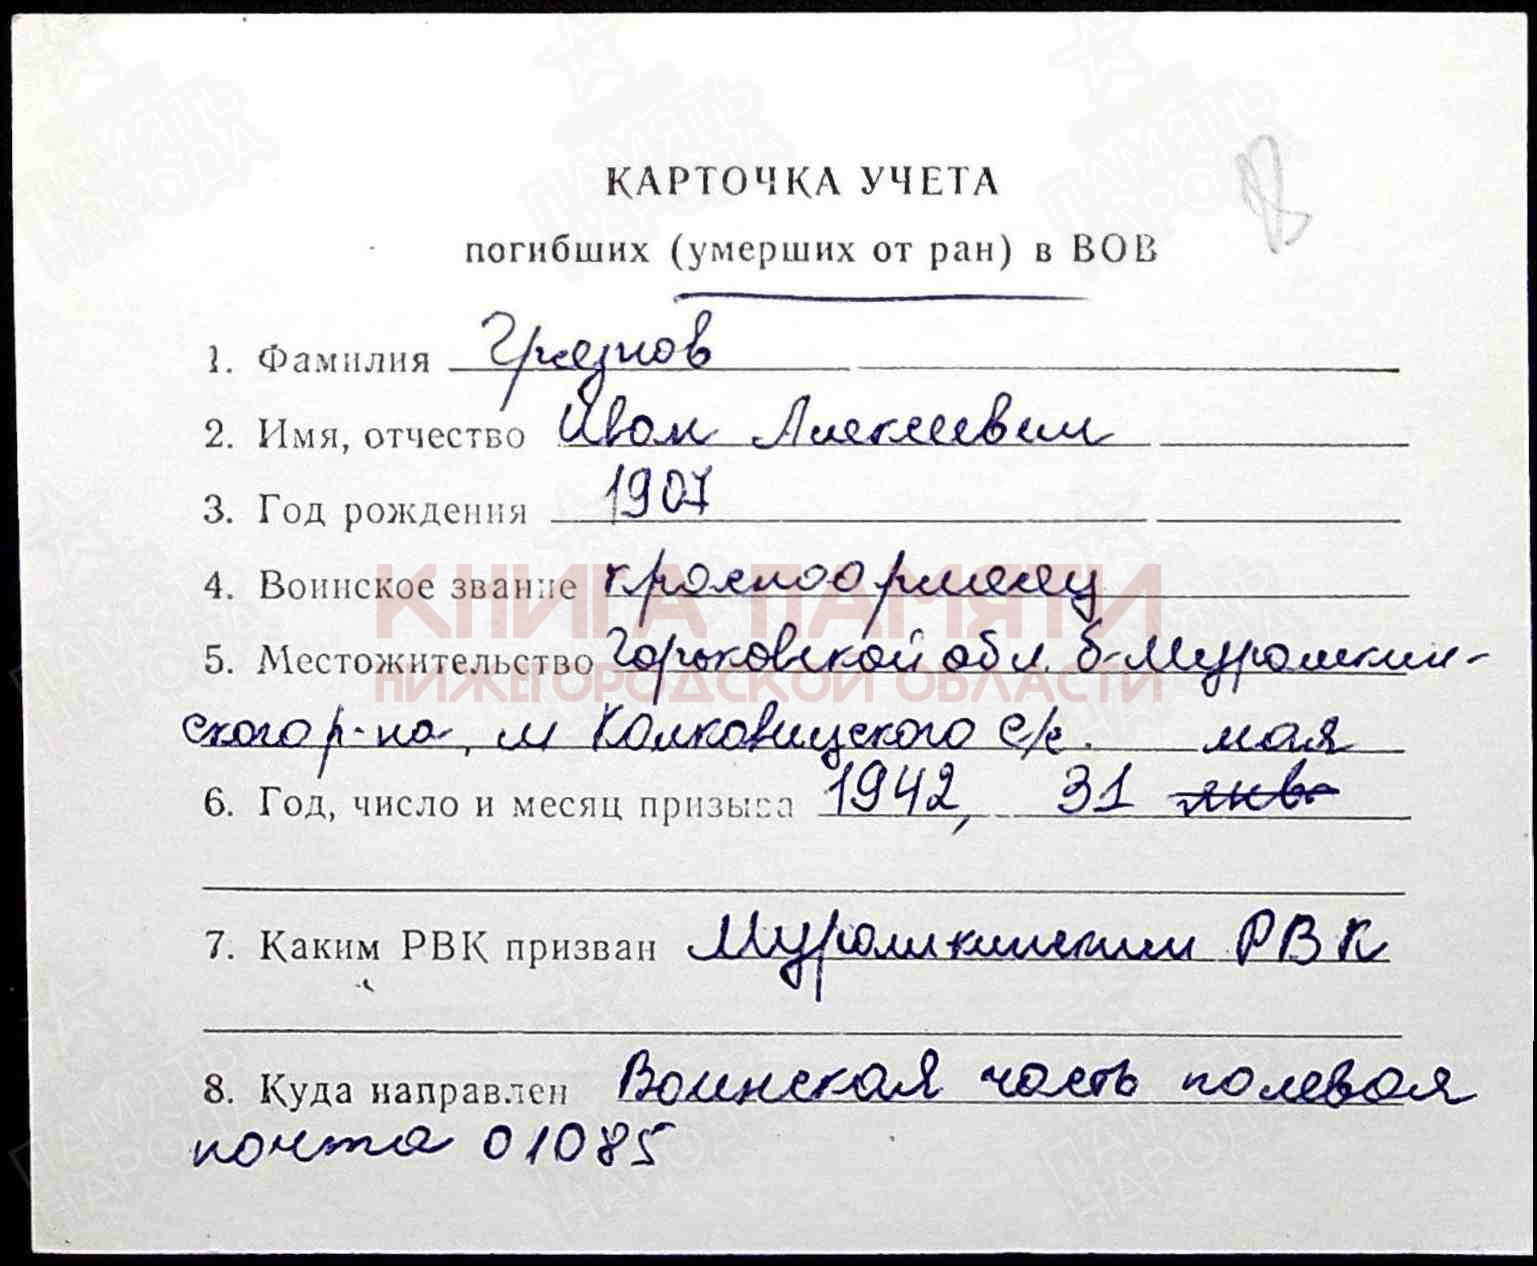 КАРТОЧКА УЧЕТА
погибших (умерших от ран) в ВОВ
1. Фамилия Грезнов
2. Имя, отчество Иван Алексеевич
3. Год рождения 1907
4. Воинское звание красноармеец
КНИГА ПАМЯТИ
5. Местожительство Горьковской обл. Б-Мурашкин-
НИЖЕГОРОДСКОЙ ОБЛАСТИ
ского р-на, м Холковицского с/с. мая
6. Год, число и месяц призыва 1942, 31 янв
7. Каким РВК призван Мурашкинским РВК
8. Куда направлен Воинская часть полевая
почта 01085